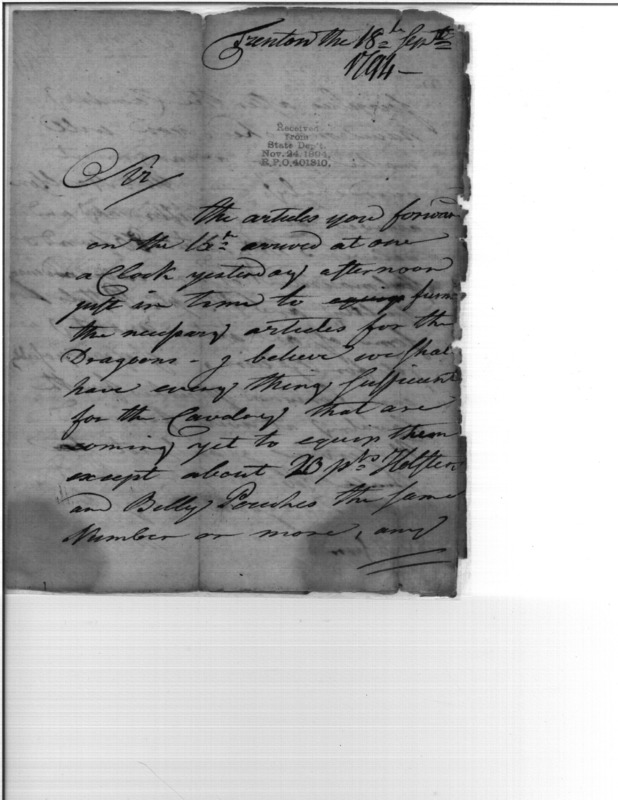 Trenton the 18th Septr
1794 –
Received
From
State Dep't.
Nov. 24, 1894,
R.P.O. 401810.
Sir
the articles you forwar
on the 16th arrived at one
a Clock yesterday afternoon
just in time to equip furn
the necessary articles for the
Dragoons – I believe we shal
have every thing sufficient
for the Cavalry that are
coming yet to equip them
except about 20 prs Holster
and Belly Pouches the same
Number or more, any